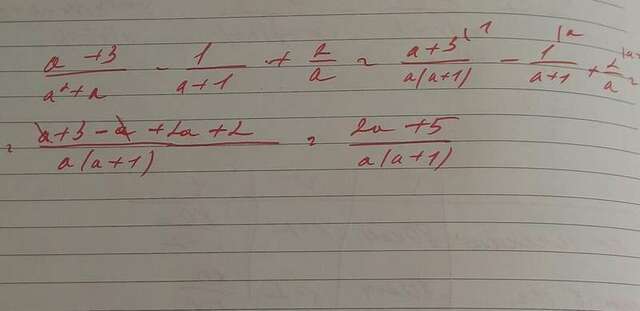 a+3/(a²+a) - 1/(a+1) + 2/a = a+3/(a(a+1)) ⁽¹ - 1/(a+1) ⁽ᵃ + 2/a =
= a+3-a+2a+2/(a(a+1)) = 2a+5/(a(a+1))